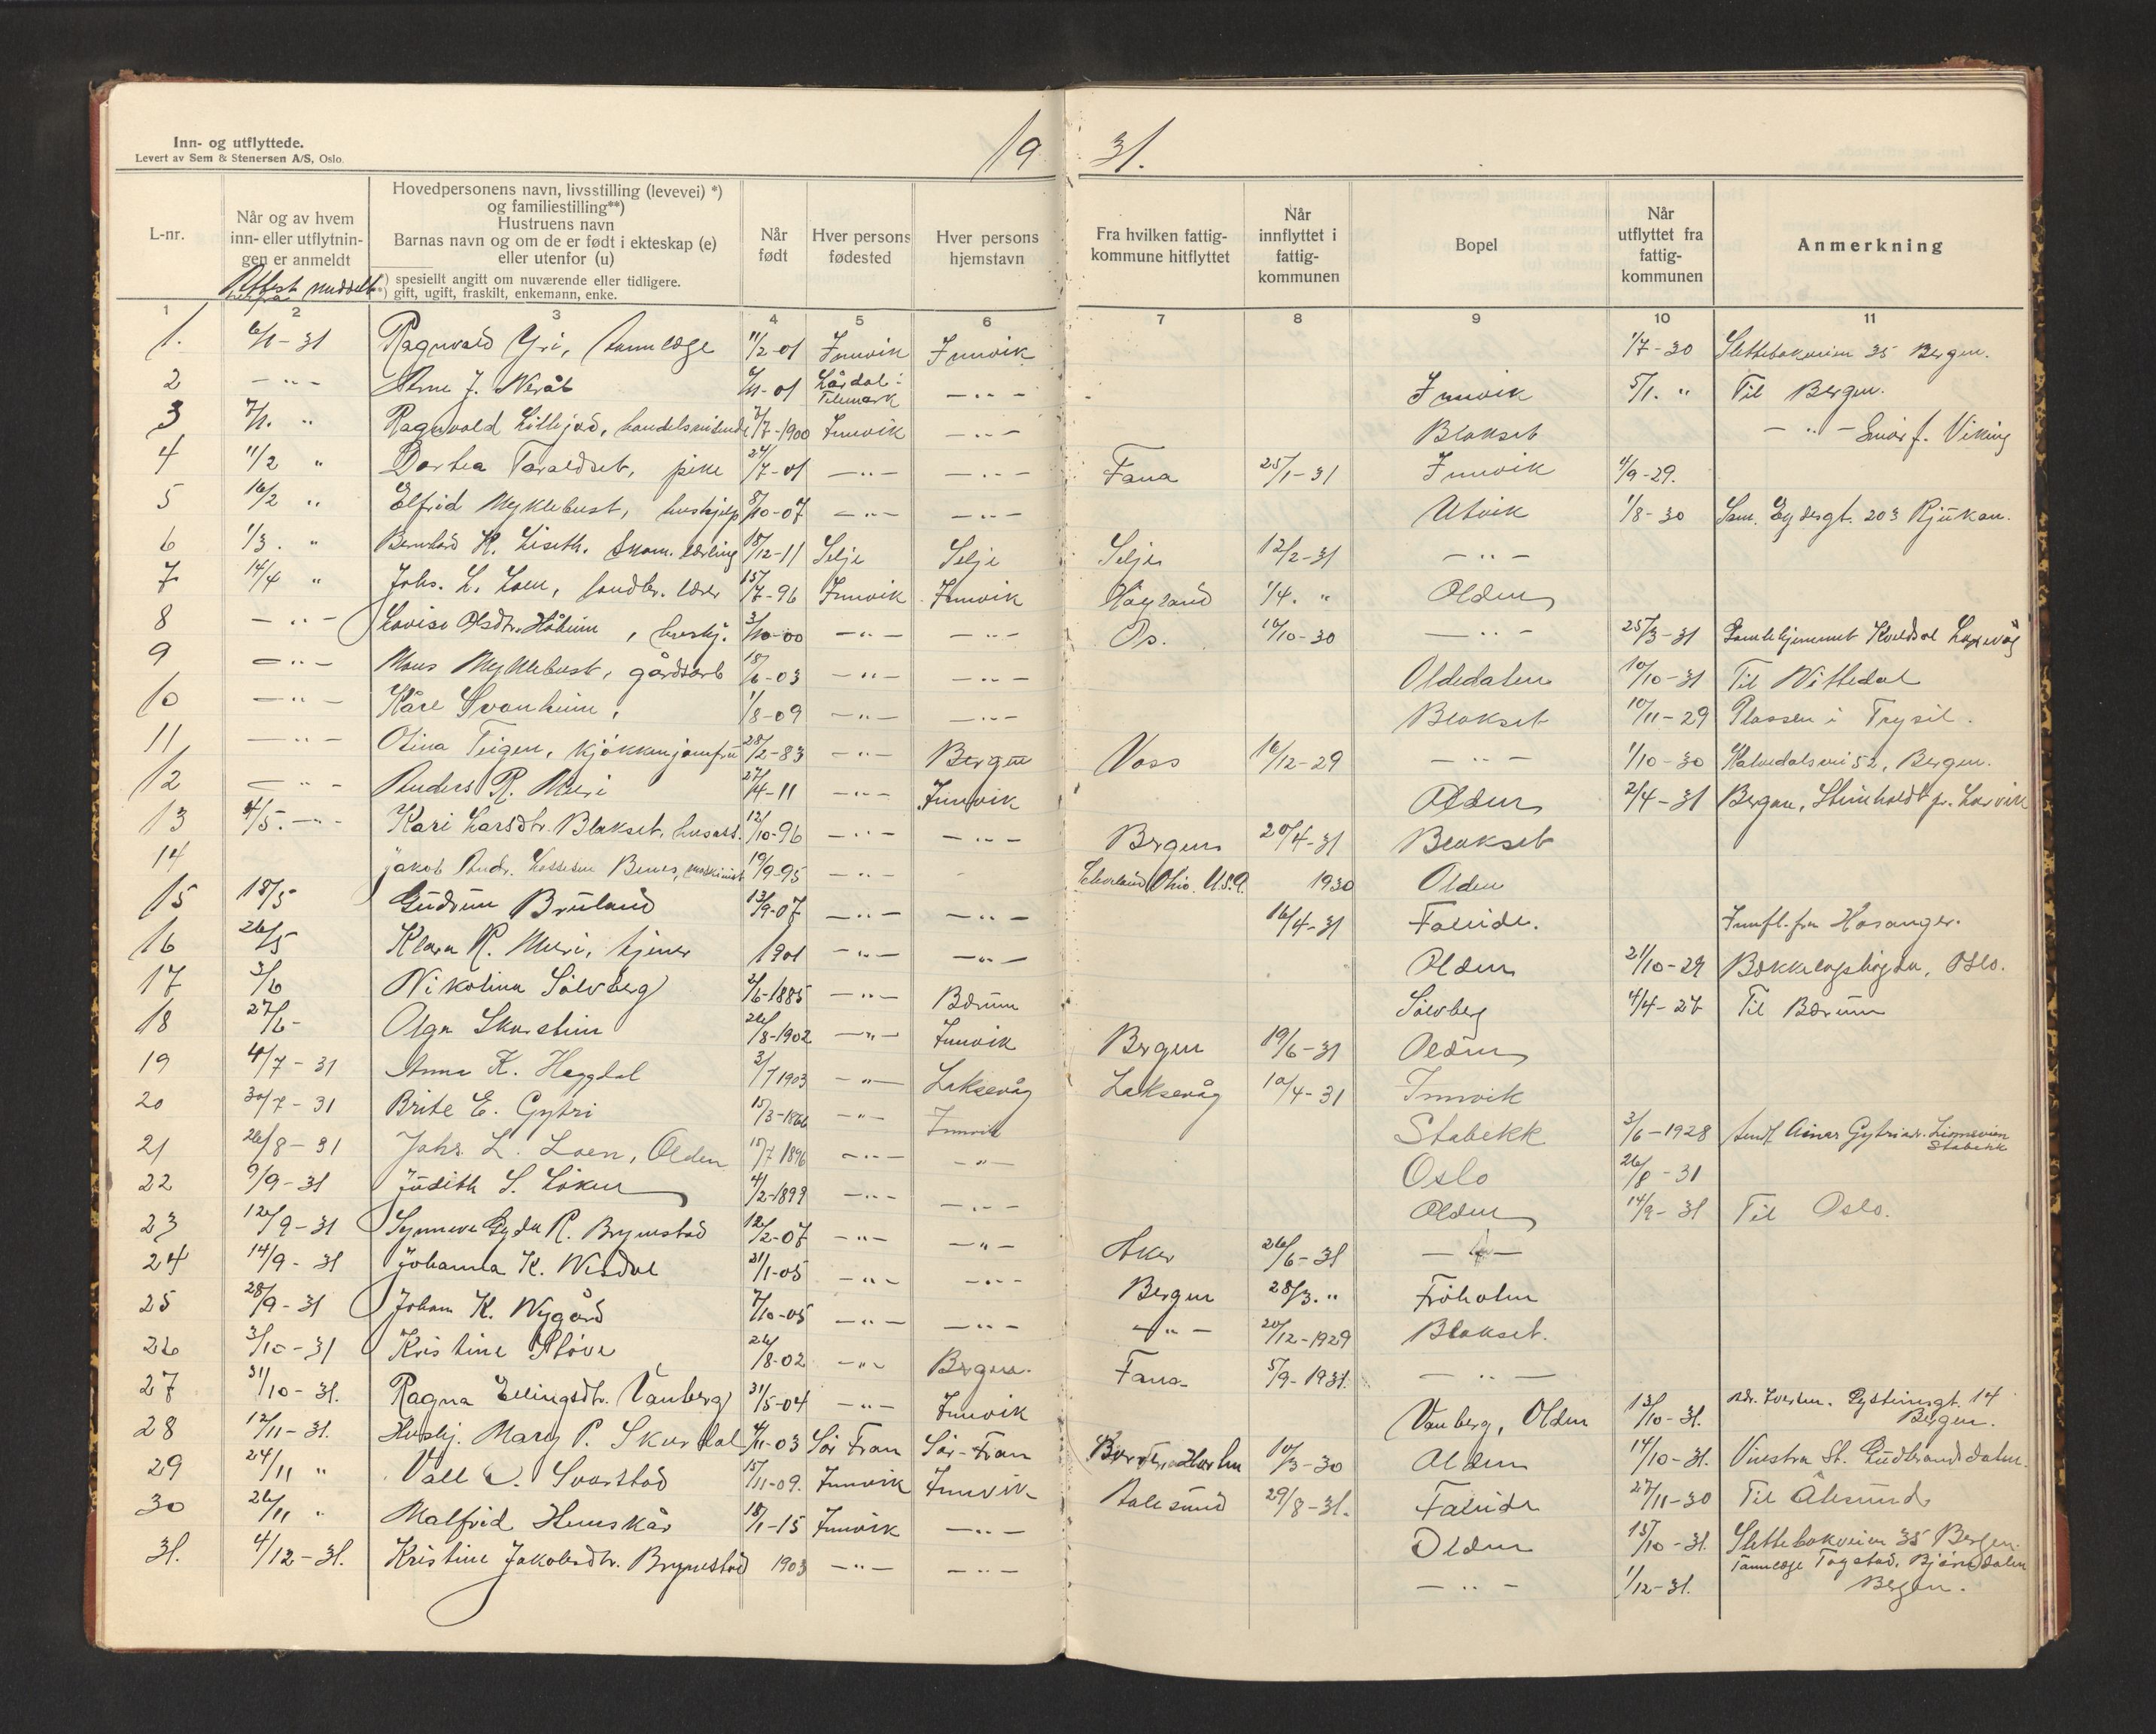 Inn- og utflyttede.
Levert av Sem & Stenersen A/S, Oslo.
1931.
L-nr.
Når og av hvem inn- eller utflytningen er anmeldt
Attest meddelt
Hovedpersonens navn, livsstilling (levevei) *)
og familiestilling**)
Hustruens navn
Barnas navn og om de er født i ekteskap (e)
eller utenfor (u)
*) spesielt angitt om nuværende eller tidligere.
**) gift, ugift, fraskilt, enkemann, enke.
Når født
Hver persons fødested
Hver persons hjemstavn
Fra hvilken fattigkommune hitflyttet
Når innflyttet i fattigkommunen
Bopel
Når utflyttet fra fattigkommunen
Anmerkning
1 2 3 4 5 6 7 8 9 10 11
1. 6/1-31 Ragnvald Yri, tannlæge 11/2-01 Innvik Innvik 1/7-30 Slettebakveien 35 Bergen.
2 -"- Arne J. Neråt Lårdal Telemark -"- Innvik 5/1. " Til Bergen.
3 7/1. " Ragnvald 7/7-1900 Innvik -"- Blakset -"- Snøref. Viking
4 11/2 " Dortea Taraldset, pike 24/7-01 -"- -"- Fana 25/1-31 Innvik 4/9-29.
5 16/2 " Elfrid Myklebust, hushjelp 8/10-07 -"- -"- Utvik 1/8-30 Sam. Eydesgt. 203 Rjukan.
6 1/3. " Bernhard K. Liseth. skom. lærling 18/12-11 Selje Selje Selje 12/2-31 -"-
7 14/4 " Johs. L. Loen, landbr. lærer 15/7-96 Innvik Innvik Høyland 1/4. " Olden
8 -"- Lovise Olsdtr. Håheim, hushj. 3/10-00 -"- -"- Os. 16/10-30 -"- 25/3-31 Gamlehjemmet Laxevåg
9 -"- Mons Myklebust, gårdsarb 18/6-03 -"- -"- Oldedalen 10/10-31 Til Nittedal
10 -"- Kåre Svanheim, 1/8-09 -"- -"- Blakset 10/11-29 Plassen i Trysil.
11 -"- Olina Teigen, kjøkkenjomfru 28/2-83 -"- Bergen Voss 16/12-29 -"- 1/10-30 Kalvedalsvei 52, Bergen.
12 -"- Anders R. Muri 27/4-11 -"- Innvik Olden 2/4-31 Bergan, Steinholdt pr. Larvik
13 4/5. -"- Kari Larsdtr. Blakset, husass. 12/10-96 -"- -"- Bergen 20/4-31 Blakset
14 Jakob Andr. Lassesen Benes, maskinist 19/9-95 -"- - Cleveland Ohio. U.S.A. 1930 Olden
15 18/5 Gudrun Bruland 13/9-07 -"- -"- 16/4-31 Faleide. Innfl. fra Hosanger.
16 26/5 Klara R. Muri, tjener 1901 -"- -"- Olden 21/10-29 Bækkelagshøgda, Oslo.
17 3/6 Nikoline Sølvberg 2/6-1885 -"- Bærum Sølvberg 4/4-27 Til Bærum
18 27/6- Olga Skarstein 26/8-1902 -"- Innvik Bergen 19/6-31 Olden
19 4/7-31 Anna K. Heggdal -"- Laksevåg Laksevåg 10/4-31 Innvik
20 30/7-31 Brite E. Gytri 15/3-1866 -"- Innvik Stabekk 3/6-1928 Sendt Einar Gytri adr. Stabekk
21 26/8-31 Johs. L. Loen, Olden 15/7 1896 -"- -"- Oslo 26/8-31
22 9/9-31 Judith S. Løken 4/2-1899 -"- -"- Olden 14/9-31 Til Oslo.
23 12/9-31 Synneve Gyda R. Brynestad 12/2-07 -"- -"- Aker 26/6-31 -"-
24 14/9-31 Johanna K. Wisdal 21/1-05 -"- -"- Bergen 28/3. " Frøholm
25 28/9-31 Johan K. Nygård 7/10-05 -"- -"- -"- 20/12-1929 Blakset.
26 3/10-31 Kristine Kløve 26/8-02 -"- Bergen. Fana 5/9-1931. -"-
27 31/10-31. Ragna Ellingsdtr. Vanberg 31/5-04 -"- Innvik Vanberg, Olden 13/10-31. adr. Iversen. Gysteinsgt. 14 Bergen.
28 12/11-31. Hushj. Mary P. Skurdal 4/11-03 Sør Fron Sør-Fron 10/3-30 Olden 14/10-31. Vinstra St. Gudbrandsdalen.
29 24/11 " Vall Svarstad 15/11-09. Innvik Innvik Aalesund 29/8-31. Faleide 27/11-30 Til Ålesund
30 26/11 " Malfrid Hunskår 18/1-15 Innvik -"- Olden 15/10-31. Slettebakveien 35 Bergen.
31. 4/12-31. Kristine Jakobsdtr. Brynestad 1903 -"- -"- -"- 1/12-31. Tannlæge Tagstad, Bjørndalen Bergen.